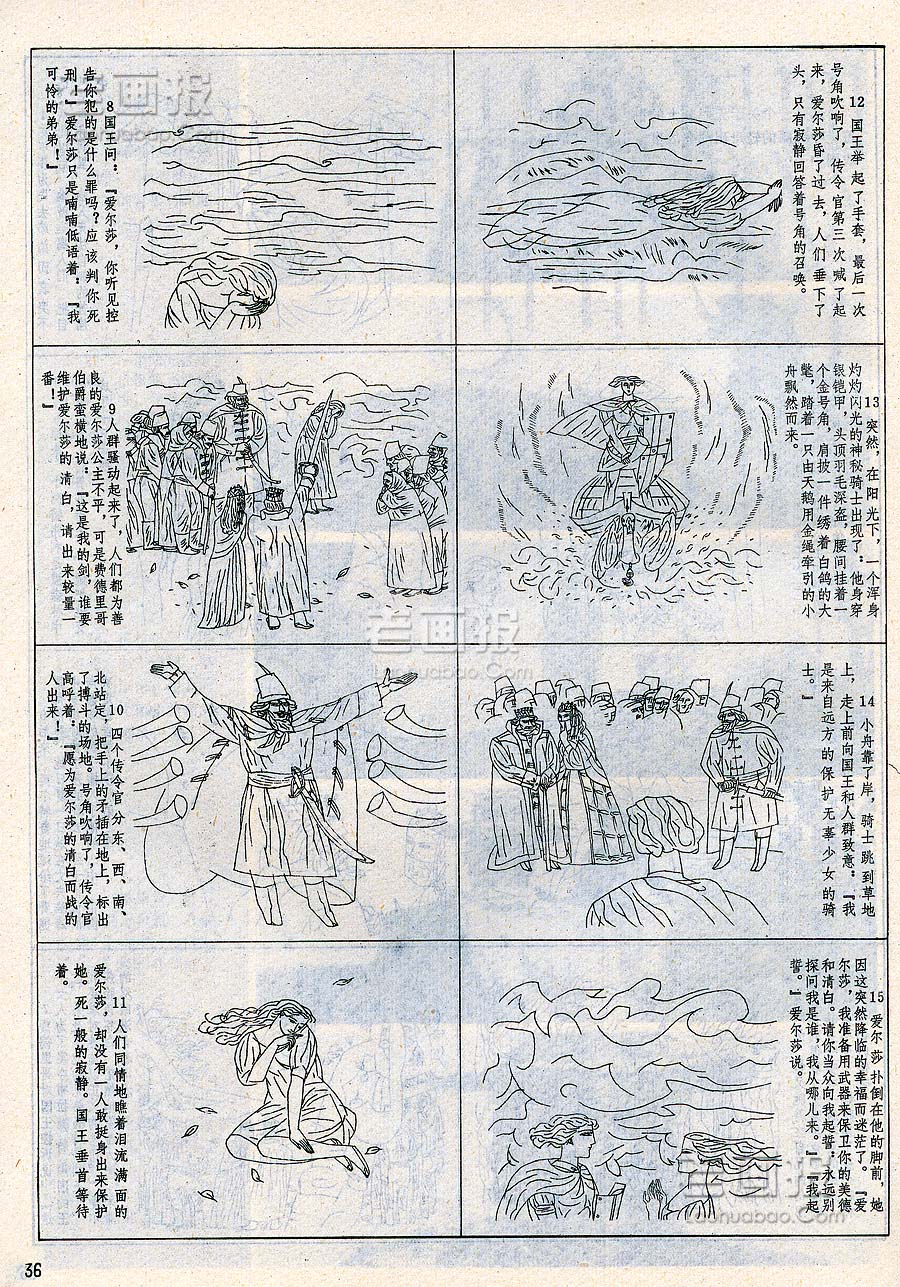 8 国王问：『爱尔莎，你听见控
告你犯的是什么罪吗？应该判你死
刑！』爱尔莎只是喃喃低语着：『我
可怜的弟弟！』
9 人群骚动起来了，人们都为善
良的爱尔莎公主不平，可是费德里哥
伯爵蛮横地说：『这是我的剑，谁要
维护爱尔莎的清白，请出来较量一
番！』
10 四个传令官分东、西、南、
北站定，把手上的矛插在地上，标出
了搏斗的场地。号角吹响了，传令官
高呼着：『愿为爱尔莎的清白而战的
人出来！』
11 人们同情地瞧着泪流满面的
爱尔莎，却没有一人敢挺身出来保护
她。死一般的寂静。国王垂首等待
着。
12 国王举起了手套，最后一次
号角吹响了，传令官第三次喊了起
来，爱尔莎昏了过去，人们垂下了
头，只有寂静回答着号角的召唤。
13 突然，在阳光下，一个浑身
灼灼闪光的神秘骑士出现了：他身穿
银铠甲，头顶羽毛深盔，腰间挂着一
个金号角，肩披一件绣着白鸽的大
氅，踏着一只由天鹅用金绳牵引的小
舟飘然而来。
14 小舟靠了岸，骑士跳到草地
上，走上前向国王和人群致意：『我
是来自远方的保护无辜少女的骑
士。』
15 爱尔莎扑倒在他的脚前，她
因这突然降临的幸福而迷茫了。『爱
尔莎，我准备用武器来保卫你的美德
和清白。请你当众向我起誓：永远别
探问我是谁，我从哪儿来。』『我起
誓。』爱尔莎说。
36
老画报
laohuabao.com
老画报
laohuabao.Com
老画报
laohuabao.Com
老画报
Laohuabao.Com